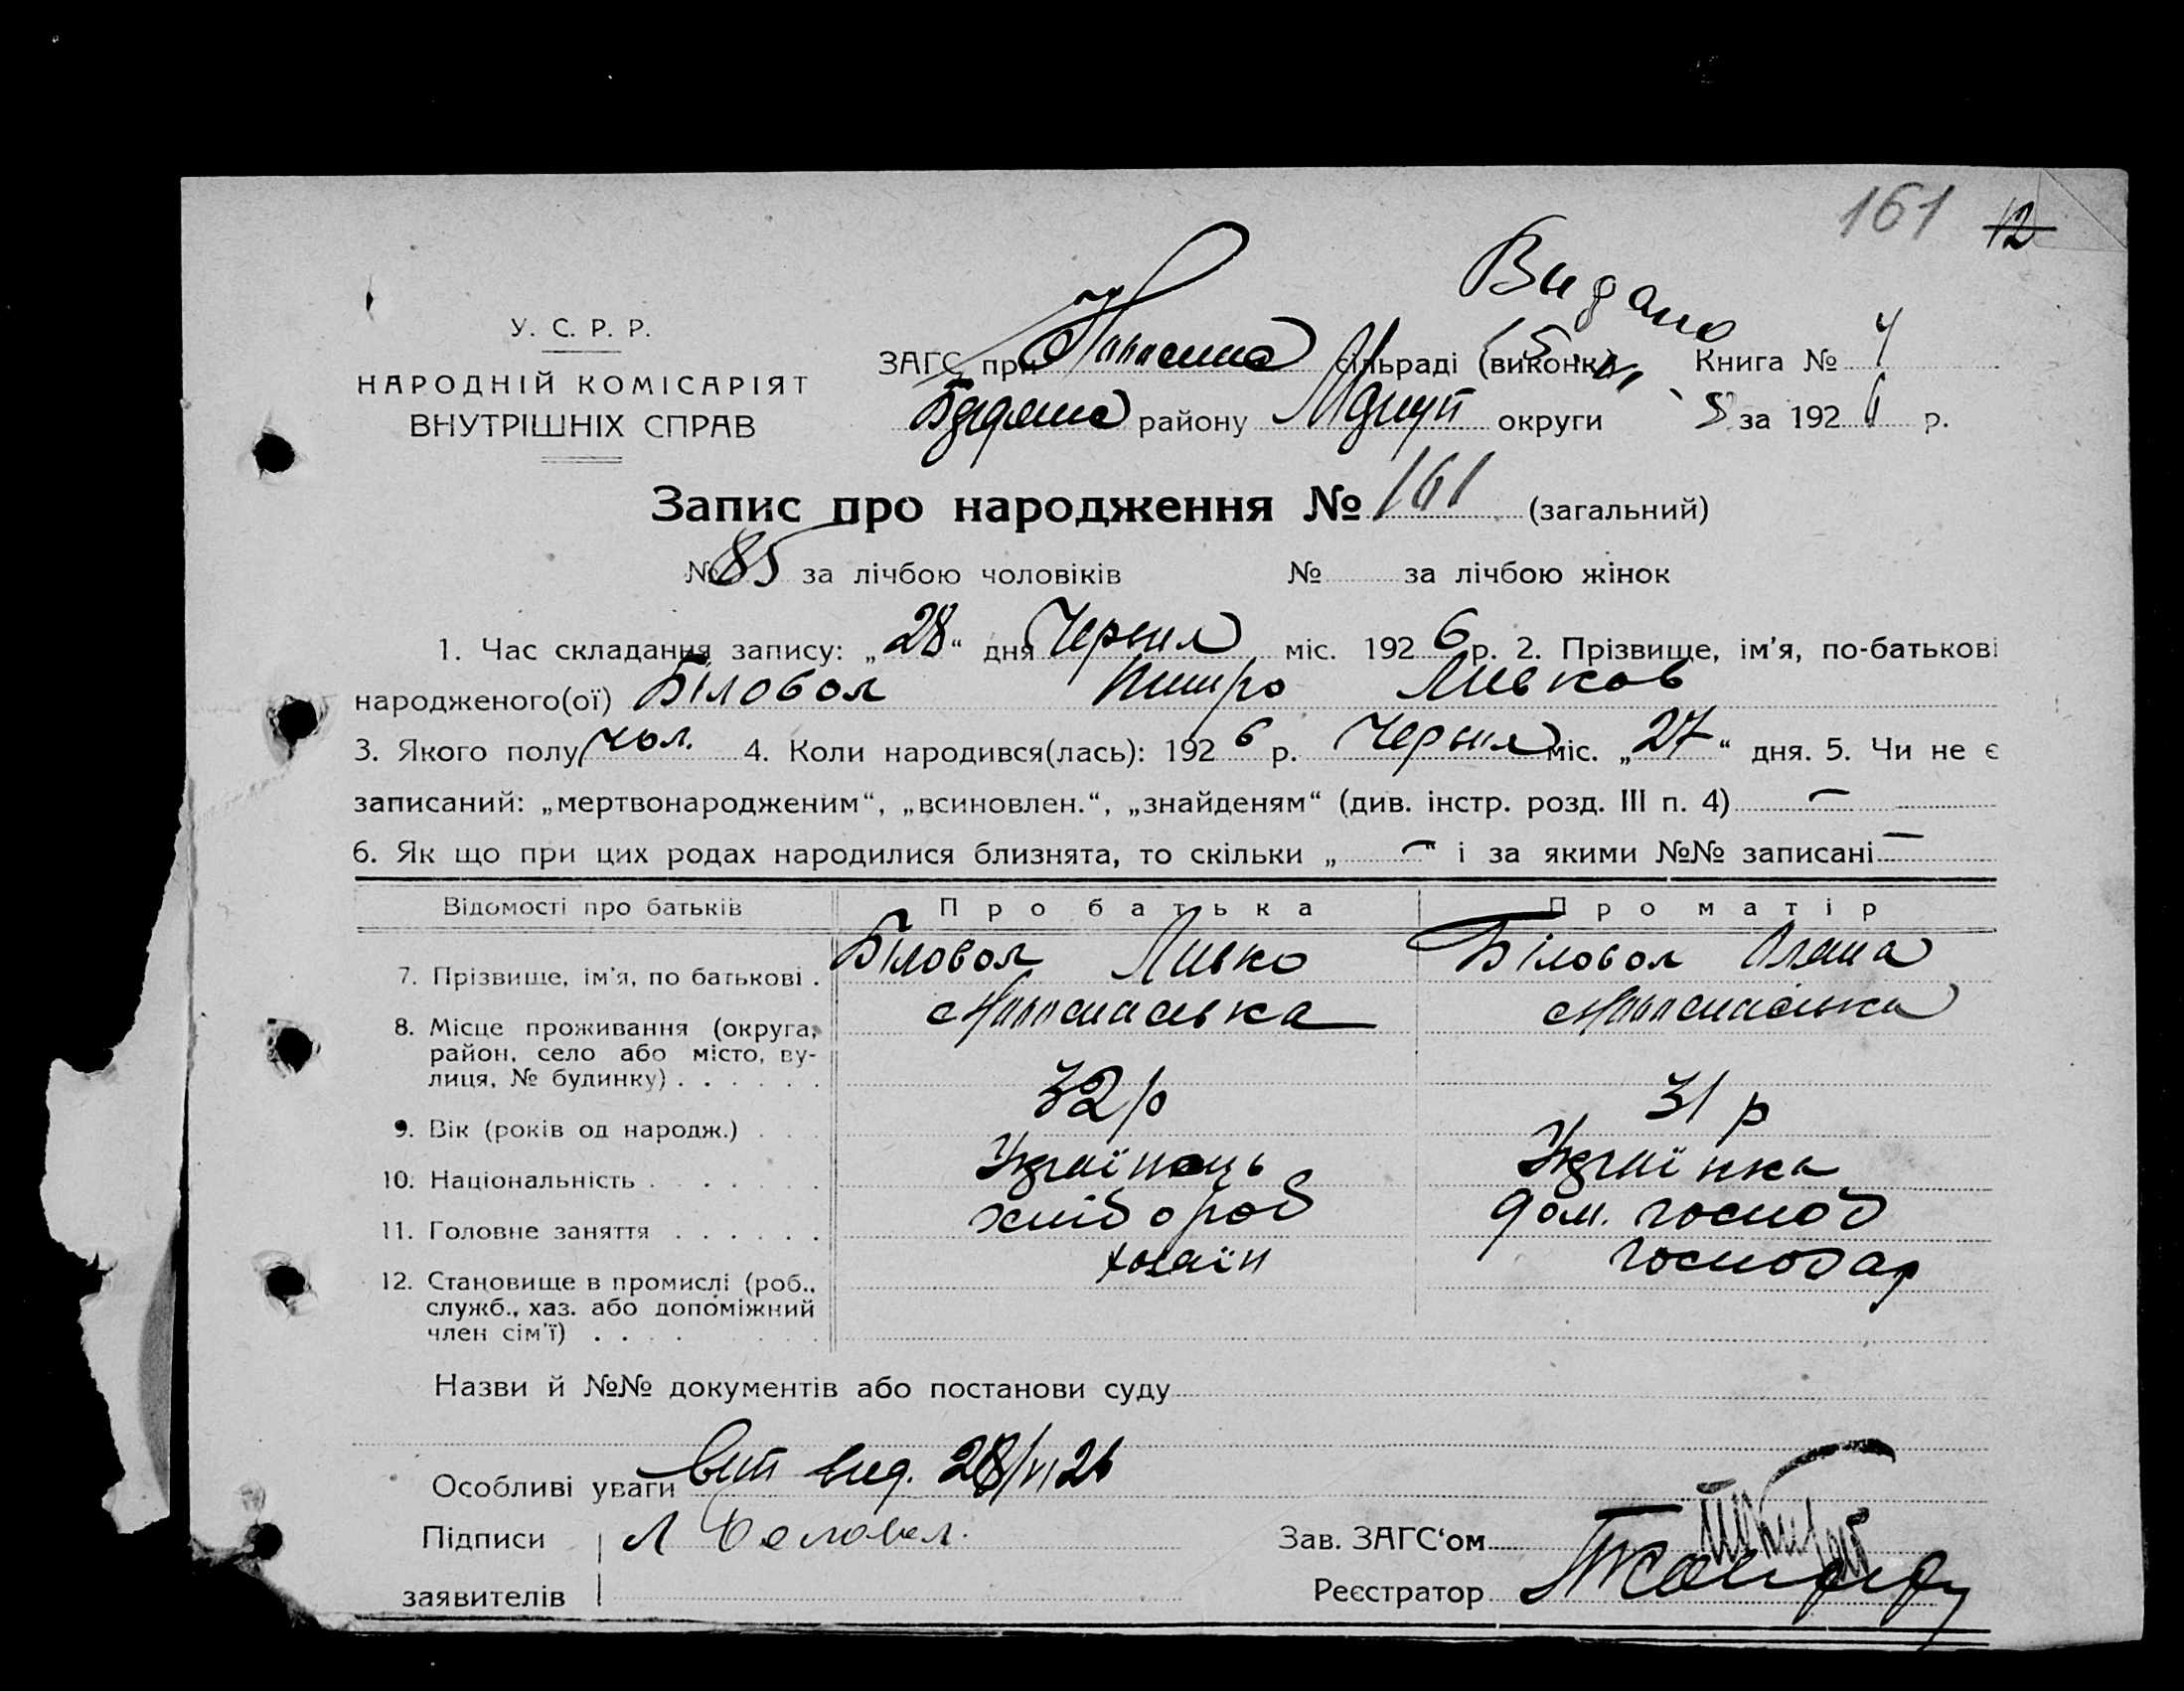 161 12
Видано
У. С. Р. Р.
НАРОДНІЙ КОМІСАРІЯТ
ВНУТРІШНІХ СПРАВ
ЗАГС при сільраді (виконк) Книга № 4
району округи за 1926 р.
Запис про народження № 161 (загальний)
№ 85 за лічбою чоловіків № за лічбою жінок
1. Час складання запису: „28“ дня Червня міс. 1926 р. 2. Прізвище, ім'я, по-батькові
народженого(ої) Біловол Левков
3. Якого полу чол. 4. Коли народився(лась): 1926 р. Червня міс. „27“ дня. 5. Чи не є
записаний: „мертвонародженим“, „всиновлен.“, „знайденям“ (див. інстр. розд. III п. 4) —
6. Як що при цих родах народилися близнята, то скільки „—“ і за якими №№ записані —
Відомості про батьків Про батька Про матір
7. Прізвище, ім'я, по батькові . Біловол Левко Біловол
8. Місце проживання (округа,
район, село або місто, ву-
лиця, № будинку) . . . . . .
9. Вік (років од народж.) . . . 32 р 31 р
10. Національність . . . . . . Українець Українка
11. Головне заняття . . . . . . хлібороб дом. господ
12. Становище в промислі (роб., хазаїн господар
служб., хаз. або допоміжний
член сім'ї) . . . .
Назви й №№ документів або постанови суду
Особливі уваги вит вид. 28/VI 26
Підписи Л Беловол.
заявителів
Зав. ЗАГС‘ом
Реєстратор